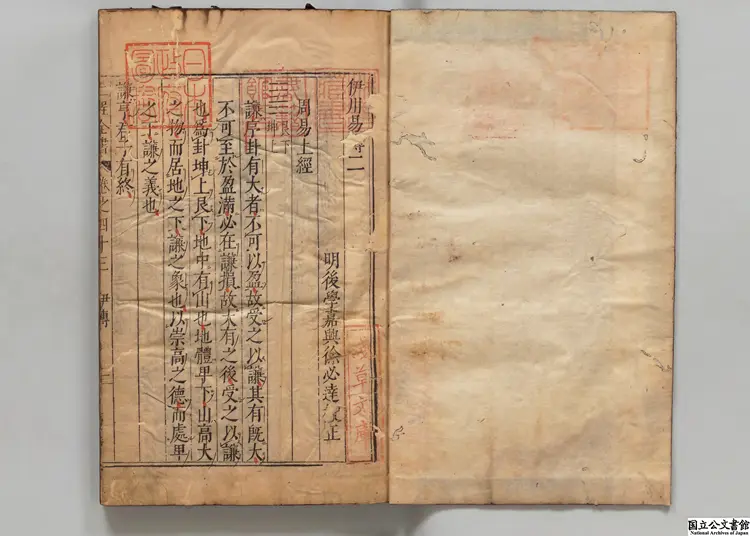 伊川易傳二
明後學嘉興徐必達校正
周易上經
艮下
坤上
謙序卦有大者不可以盈故受之以謙其有既大
不可至於盈滿必在謙損故大有之後受之以謙
也爲卦坤上艮下地中有山也地體卑下山高大
之物而居地之下謙之象也以崇高之德而處卑
之下謙之義也
謙亨君子有終
全書
卷之四十三
伊傳
淺草文庫
日本
政府
圖書
国立公文書館
National Archives of Japan